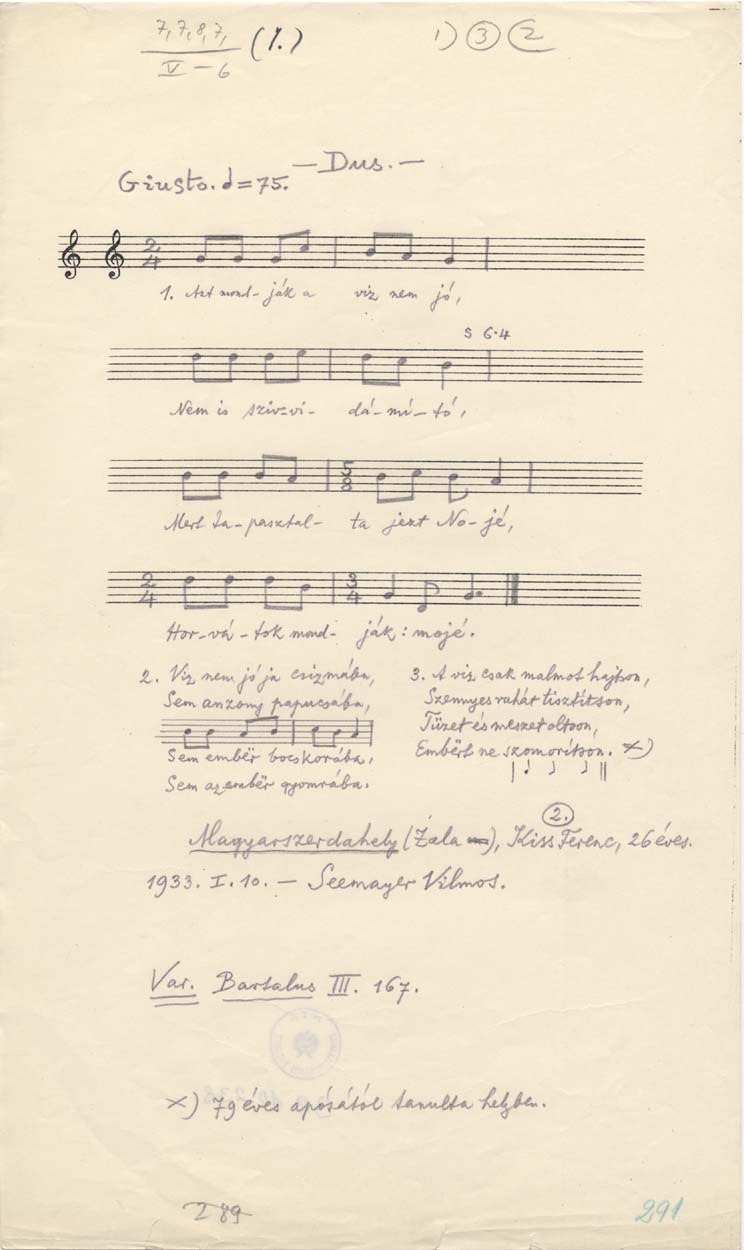 7, 7, 8, 7, (1.) 1) 3 2
V – 6
— Dus. —
Giusto. d = 75.
2/4
1. Azt mond- ják a viz nem jó,
5 6·4
Nem is szív-vi- dá-mí-tó,
5/8
Mert ta-pasztal- ta jezt No-jé,
2/4 3/4
Hor-vá-tok mond- ják: mojé.
2. Viz nem jó ja csizmába,
Sem anzony papucsába,
Sem embër bocskorába,
Sem az embër gyomrába.
3. A viz csak malmot hajtson,
Szennyes ruhát tisztítson,
Tüzet és meszet oltson,
Embërt ne szomorítson. ×)
2.
Magyarszerdahely (Zala), Kiss Ferenc, 26 éves.
1933. I. 10. — Seemayer Vilmos.
Var. Bartalus III. 167.
×) 79 éves apósától tanulta helyben.
289
291